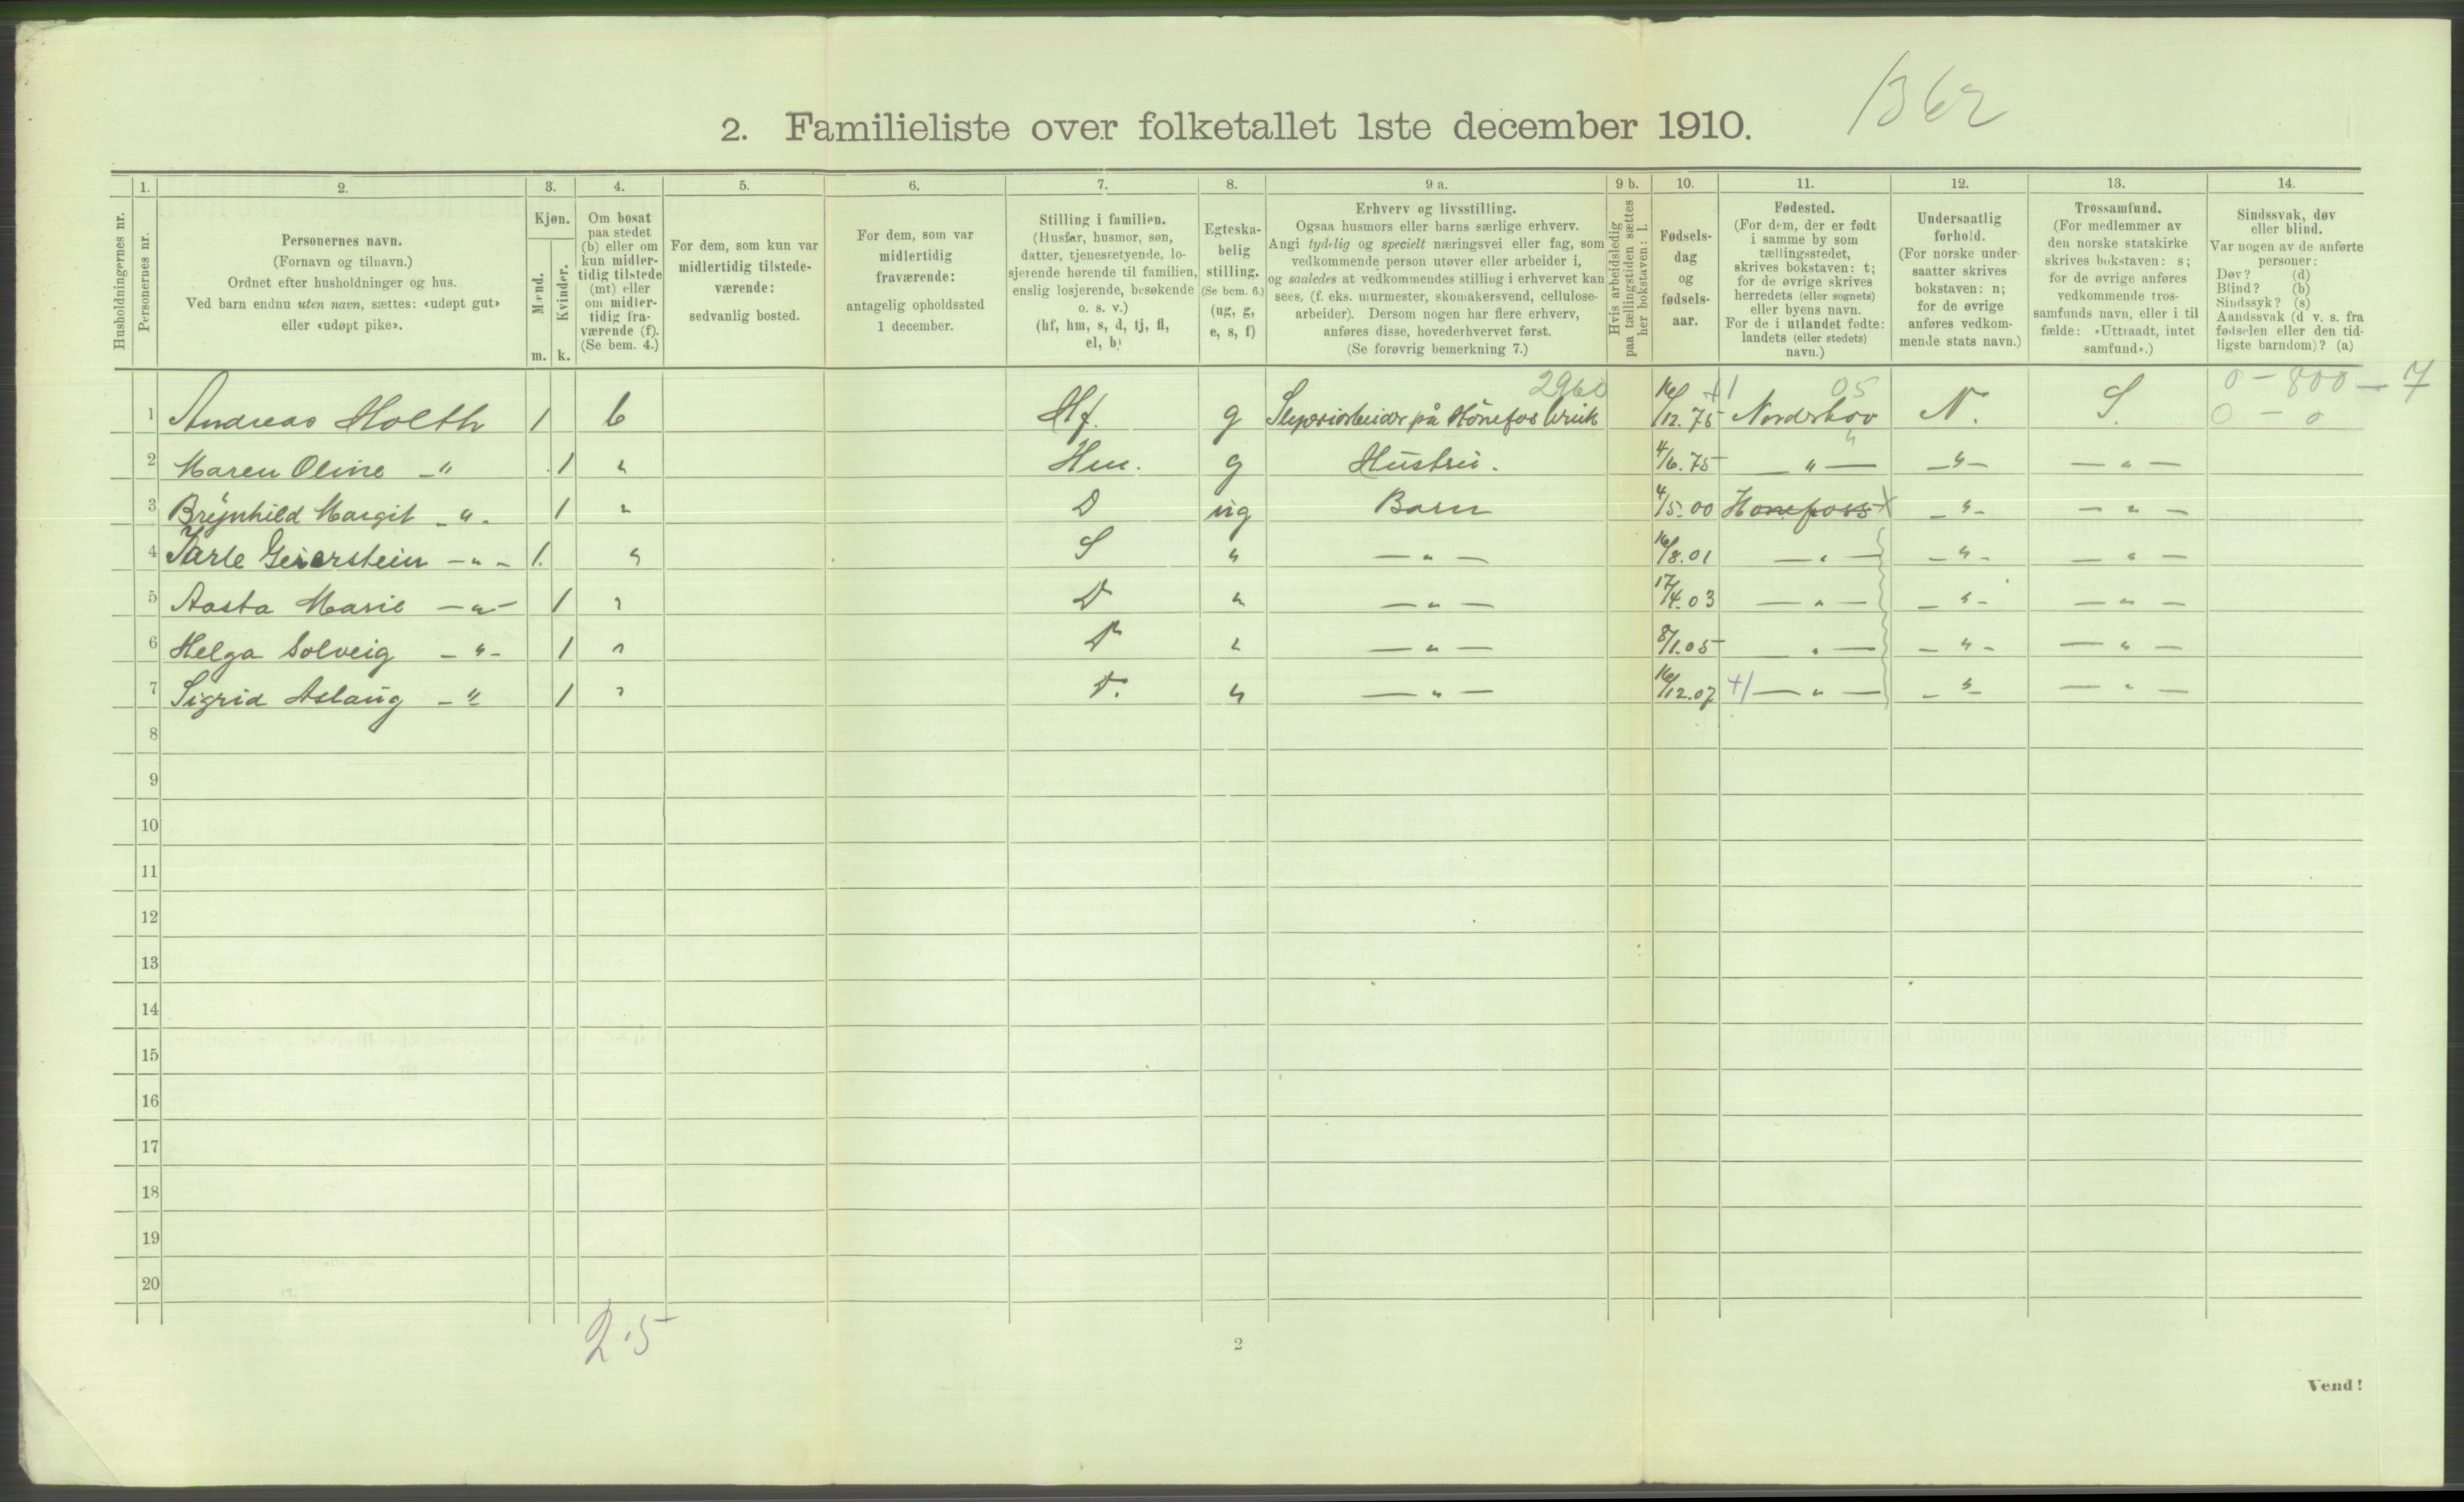 1362
2. Familieliste over folketallet 1ste december 1910.
Husholdningernes nr.
1.
Personernes nr.
2.
Personernes navn.
(Fornavn og tilnavn.)
Ordnet efter husholdninger og hus.
Ved barn endnu uten navn, sættes: «udøpt gut»
eller «udøpt pike».
3.
Kjøn.
Mænd.
Kvinder.
m. k.
4.
Om bosat
paa stedet
(b) eller om
kun midler-
tidig tilstede
(mt) eller
om midler-
tidig fra-
værende (f).
(Se bem. 4.)
5.
For dem, som kun var
midlertidig tilstede-
værende:
sedvanlig bosted.
6.
For dem, som var
midlertidig
fraværende:
antagelig opholdssted
1 december.
7.
Stilling i familien.
(Husfar, husmor, søn,
datter, tjenestetyende, lo-
sjerende hørende til familien,
enslig losjerende, besøkende
o. s. v.)
(hf, hm, s, d, tj, fl,
el, b)
8.
Egteska-
belig
stilling.
(Se bem. 6.)
(ug, g,
e, s, f)
9 a.
Erhverv og livsstilling.
Ogsaa husmors eller barns særlige erhverv.
Angi tydelig og specielt næringsvei eller fag, som
vedkommende person utøver eller arbeider i,
og saaledes at vedkommendes stilling i erhvervet kan
sees, (f. eks. murmester, skomakersvend, cellulose-
arbeider). Dersom nogen har flere erhverv,
anføres disse, hovederhvervet først.
(Se forøvrig bemerkning 7.)
9 b.
Hvis arbeidsledig
paa tællingstiden sættes
her bokstaven: l.
10.
Fødsels-
dag
og
fødsels-
aar.
11.
Fødested.
(For dem, der er født
i samme by som
tællingsstedet,
skrives bokstaven: t;
for de øvrige skrives
herredets (eller sognets)
eller byens navn.
For de i utlandet fødte:
landets (eller stedets)
navn.)
12.
Undersaatlig
forhold.
(For norske under-
saatter skrives
bokstaven: n;
for de øvrige
anføres vedkom-
mende stats navn.)
13.
Trossamfund.
(For medlemmer av
den norske statskirke
skrives bokstaven: s;
for de øvrige anføres
vedkommende tros-
samfunds navn, eller i til
fælde: «Uttraadt, intet
samfund».)
14.
Sindssvak, døv
eller blind.
Var nogen av de anførte
personer:
Døv? (d)
Blind? (b)
Sindssyk? (s)
Aandssvak (d. v. s. fra
fødselen eller den tid-
ligste barndom)? (a)
2960 +1 05 0 - 800 - 7
1 Andreas Holth 1 b Hf. g Sliperiarbeider på Hönefos bruk 16/12.75 Norderhov N. S. 0 - 0
2 Maren Oline -"- 1 " Hm. g Hustru. 4/6.75 -"- -"- -"-
3 Brynhild Margit -"- 1 " D ug Barn 4/5.00 Honefoss -"- -"-
4 Jarle Geierstein -"- 1. " S " -"- 16/8.01 -"- -"- -"-
5 Aasta Marie -"- 1 " D " -"- 17/4.03 -"- -"- -"-
6 Helga Solveig -"- 1 " D " -"- 8/1.05 -"- -"- -"-
7 Sigrid Aslaug -"- 1 " D. " -"- 16/12.07 +1 -"- -"- -"-
8
9
10
11
12
13
14
15
16
17
18
19
20
2.5
2
Vend!